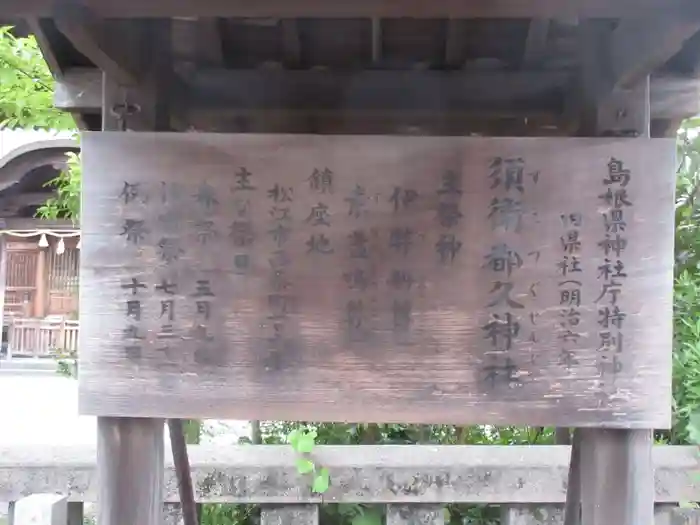 島根県神社庁特別神社
旧県社(明治六年
須衛都久神社
主祭神
伊弉冊尊
素盞嗚尊
鎮座地
松江市西茶町
主な祭日
春祭 三月九日
祭 七月三十
例祭 十月九日